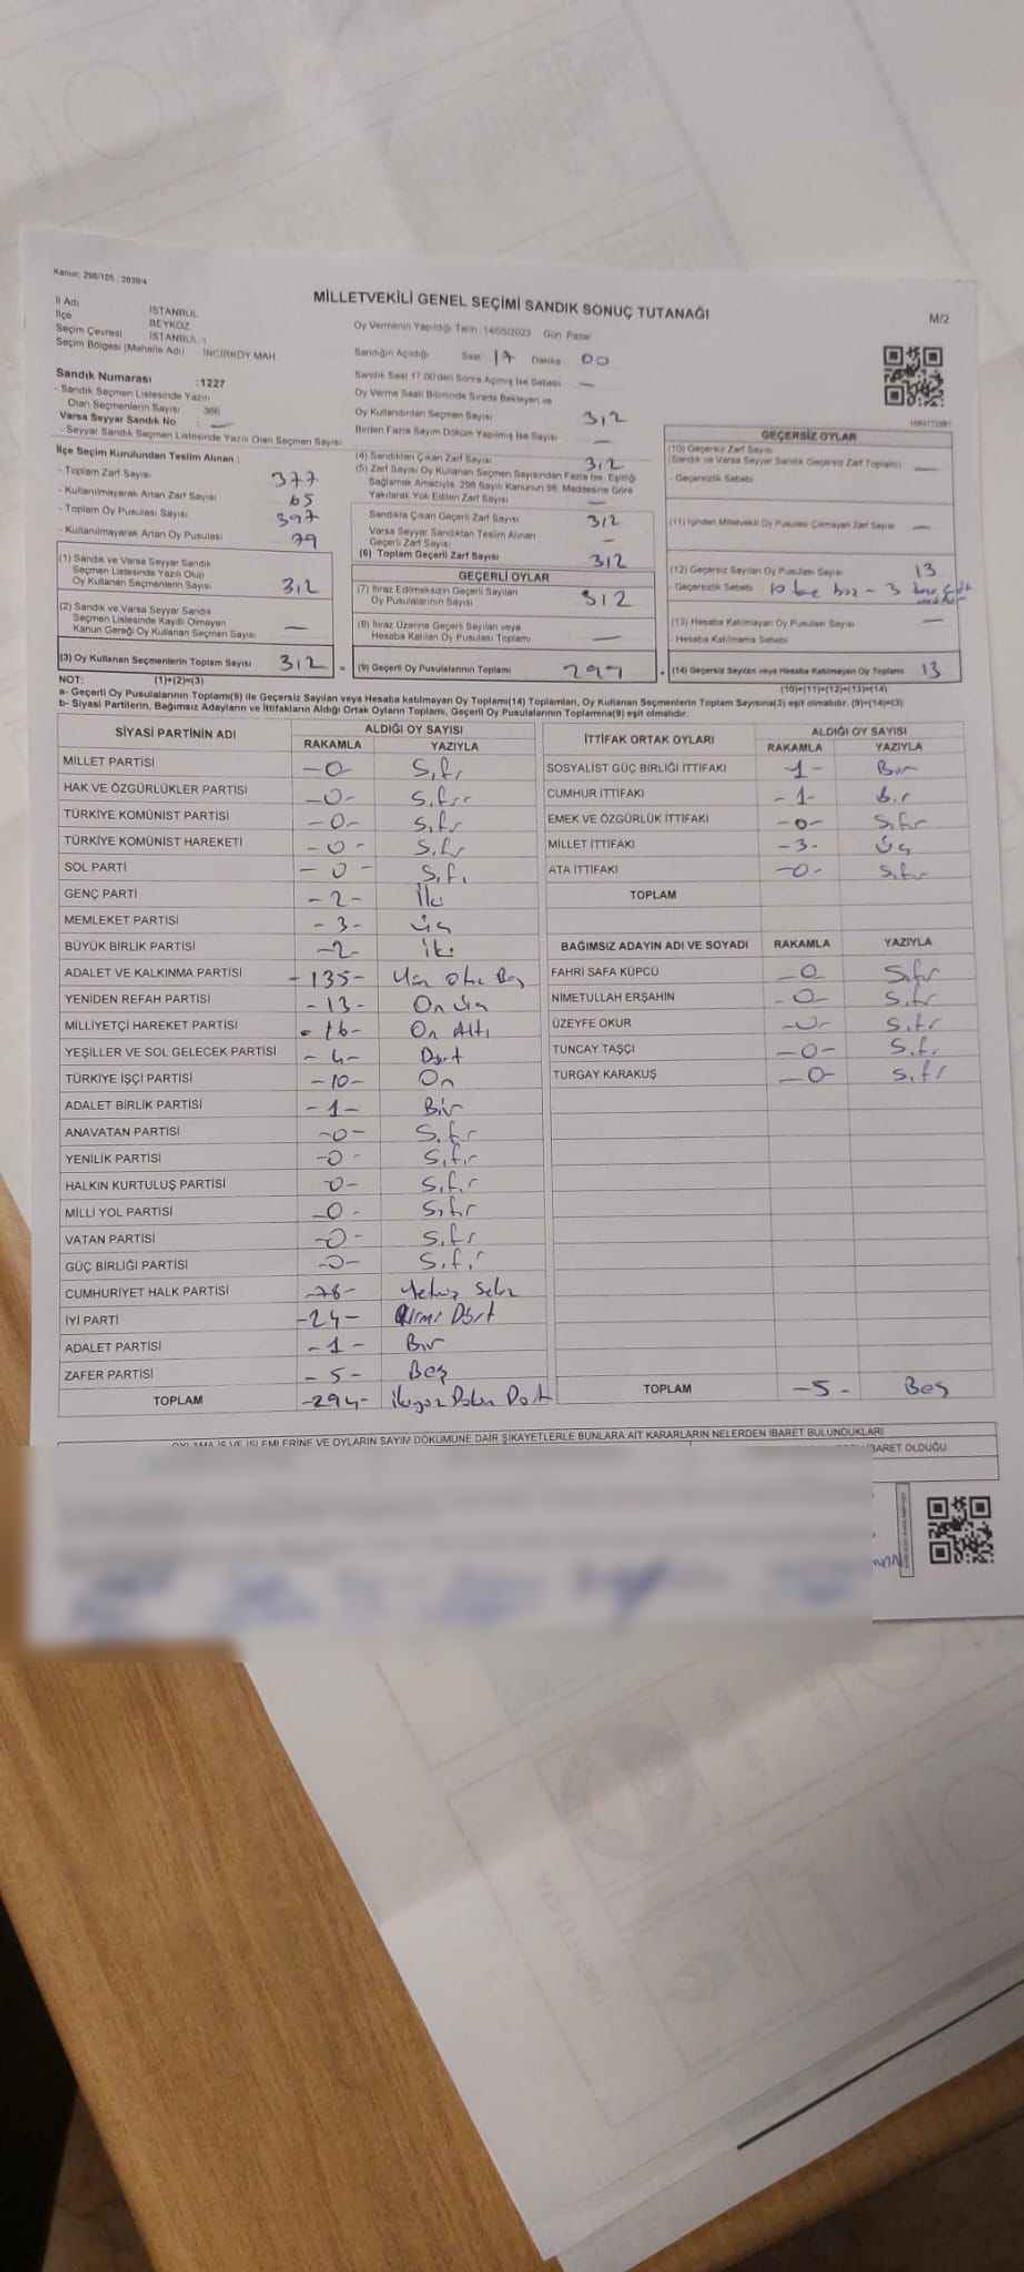 Kanun: 298/105 : 2839/4
MİLLETVEKİLİ GENEL SEÇİMİ SANDIK SONUÇ TUTANAĞI
M/2
İl Adı İSTANBUL
İlçe BEYKOZ
Seçim Çevresi İSTANBUL-1
Seçim Bölgesi (Mahalle Adı) İNCİRKÖY MAH.
Sandık Numarası :1227
- Sandık Seçmen Listesinde Yazılı
Olan Seçmenlerin Sayısı :
Varsa Seyyar Sandık No : —
- Seyyar Sandık Seçmen Listesinde Yazılı Olan Seçmen Sayısı:
İlçe Seçim Kurulundan Teslim Alınan :
- Toplam Zarf Sayısı 377
- Kullanılmayarak Artan Zarf Sayısı 65
- Toplam Oy Pusulası Sayısı 397
- Kullanılmayarak Artan Oy Pusulası 79
(1) Sandık ve Varsa Seyyar Sandık
Seçmen Listesinde Yazılı Olup
Oy Kullanan Seçmenlerin Sayısı 312
(2) Sandık ve Varsa Seyyar Sandık
Seçmen Listesinde Kaydı Olmayan
Kanun Gereği Oy Kullanan Seçmen Sayısı —
(3) Oy Kullanan Seçmenlerin Toplam Sayısı 312
Oy Vermenin Yapıldığı Tarih :14/05/2023 Gün: Pazar
Sandığın Açıldığı Saat 17 Dakika 00
Sandık Saat 17.00'den Sonra Açılmış İse Sebebi —
Oy Verme Saati Bitiminde Sırada Bekleyen ve
Oy Kullandırılan Seçmen Sayısı 312
Birden Fazla Sayım Döküm Yapılmış İse Sayısı —
(4) Sandıktan Çıkan Zarf Sayısı 312
(5) Zarf Sayısı Oy Kullanan Seçmen Sayısından Fazla İse, Eşitliği
Sağlamak Amacıyla, 298 Sayılı Kanunun 98. Maddesine Göre
Yakılarak Yok Edilen Zarf Sayısı —
Sandıkta Çıkan Geçerli Zarf Sayısı 312
Varsa Seyyar Sandıktan Teslim Alınan
Geçerli Zarf Sayısı —
(6) Toplam Geçerli Zarf Sayısı 312
GEÇERLİ OYLAR
(7) İtiraz Edilmeksizin Geçerli Sayılan
Oy Pusulalarının Sayısı 312
(8) İtiraz Üzerine Geçerli Sayılan veya
Hesaba Katılan Oy Pusulası Toplamı —
(9) Geçerli Oy Pusulalarının Toplamı 299
GEÇERSİZ OYLAR
(10) Geçersiz Zarf Sayısı
(Sandık ve Varsa Seyyar Sandık Geçersiz Zarf Toplamı) —
- Geçersizlik Sebebi
(11) İçinden Milletvekili Oy Pusulası Çıkmayan Zarf Sayısı —
(12) Geçersiz Sayılan Oy Pusulası Sayısı 13
Geçersizlik Sebebi 10 - 3
(13) Hesaba Katılmayan Oy Pusulası Sayısı —
- Hesaba Katılmama Sebebi
(14) Geçersiz Sayılan veya Hesaba Katılmayan Oy Toplamı 13
NOT: (1)+(2)=(3)
(10)+(11)+(12)+(13)=(14)
a- Geçerli Oy Pusulalarının Toplamı(9) ile Geçersiz Sayılan veya Hesaba katılmayan Oy Toplamı(14) Toplamları, Oy Kullanan Seçmenlerin Toplam Sayısına(3) eşit olmalıdır. (9)+(14)=(3)
b- Siyasi Partilerin, Bağımsız Adayların ve İttifakların Aldığı Ortak Oyların Toplamı, Geçerli Oy Pusulalarının Toplamına(9) eşit olmalıdır.
SİYASİ PARTİNİN ADI ALDIĞI OY SAYISI
RAKAMLA YAZIYLA
MİLLET PARTİSİ -0 Sıfır
HAK VE ÖZGÜRLÜKLER PARTİSİ -0- Sıfır
TÜRKİYE KOMÜNİST PARTİSİ -0- Sıfır
TÜRKİYE KOMÜNİST HAREKETİ -0- Sıfır
SOL PARTİ -0- Sıfır
GENÇ PARTİ -2- İki
MEMLEKET PARTİSİ -3- Üç
BÜYÜK BİRLİK PARTİSİ -2- İki
ADALET VE KALKINMA PARTİSİ -135- Yüz Otuz Beş
YENİDEN REFAH PARTİSİ -13- On Üç
MİLLİYETÇİ HAREKET PARTİSİ -16- On Altı
YEŞİLLER VE SOL GELECEK PARTİSİ -4- Dört
TÜRKİYE İŞÇİ PARTİSİ -10- On
ADALET BİRLİK PARTİSİ -1- Bir
ANAVATAN PARTİSİ -0- Sıfır
YENİLİK PARTİSİ -0- Sıfır
HALKIN KURTULUŞ PARTİSİ -0- Sıfır
MİLLİ YOL PARTİSİ -0- Sıfır
VATAN PARTİSİ -0- Sıfır
GÜÇ BİRLİĞİ PARTİSİ -0- Sıfır
CUMHURİYET HALK PARTİSİ -78- Yetmiş Sekiz
İYİ PARTİ -24- Yirmi Dört
ADALET PARTİSİ -1- Bir
ZAFER PARTİSİ -5- Beş
TOPLAM -294- İkiyüz Doksan Dört
İTTİFAK ORTAK OYLARI ALDIĞI OY SAYISI
RAKAMLA YAZIYLA
SOSYALİST GÜÇ BİRLİĞİ İTTİFAKI 1- Bir
CUMHUR İTTİFAKI -1- Bir
EMEK VE ÖZGÜRLÜK İTTİFAKI -0- Sıfır
MİLLET İTTİFAKI -3- Üç
ATA İTTİFAKI -0- Sıfır
TOPLAM
BAĞIMSIZ ADAYIN ADI VE SOYADI RAKAMLA YAZIYLA
FAHRİ SAFA KÜPCÜ -0 Sıfır
NİMETULLAH ERŞAHİN -0- Sıfır
ÜZEYFE OKUR -0- Sıfır
TUNCAY TAŞÇI -0- Sıfır
TURGAY KARAKUŞ -0- Sıfır
TOPLAM -5- Beş
OYLAMA İŞ VE İŞLEMLERİNE VE OYLARIN SAYIM DÖKÜMÜNE DAİR ŞİKAYETLERLE BUNLARA AİT KARARLARIN NELERDEN İBARET BULUNDUKLARI
İBARET OLDUĞU